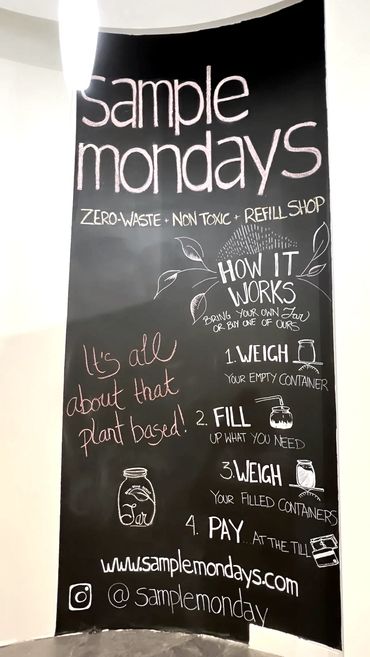 sample
mondays
ZERO-WASTE + NON TOXIC + REFILL SHOP
HOW IT
WORKS
BRING YOUR OWN Jar
OR BUY ONE OF OURS
1. WEIGH
YOUR EMPTY CONTAINER
2. FILL
UP WHAT YOU NEED
3. WEIGH
YOUR FILLED CONTAINERS
4. PAY... AT THE TILL
It's all
about that
plant based!
Jar
www.samplemondays.com
@samplemonday